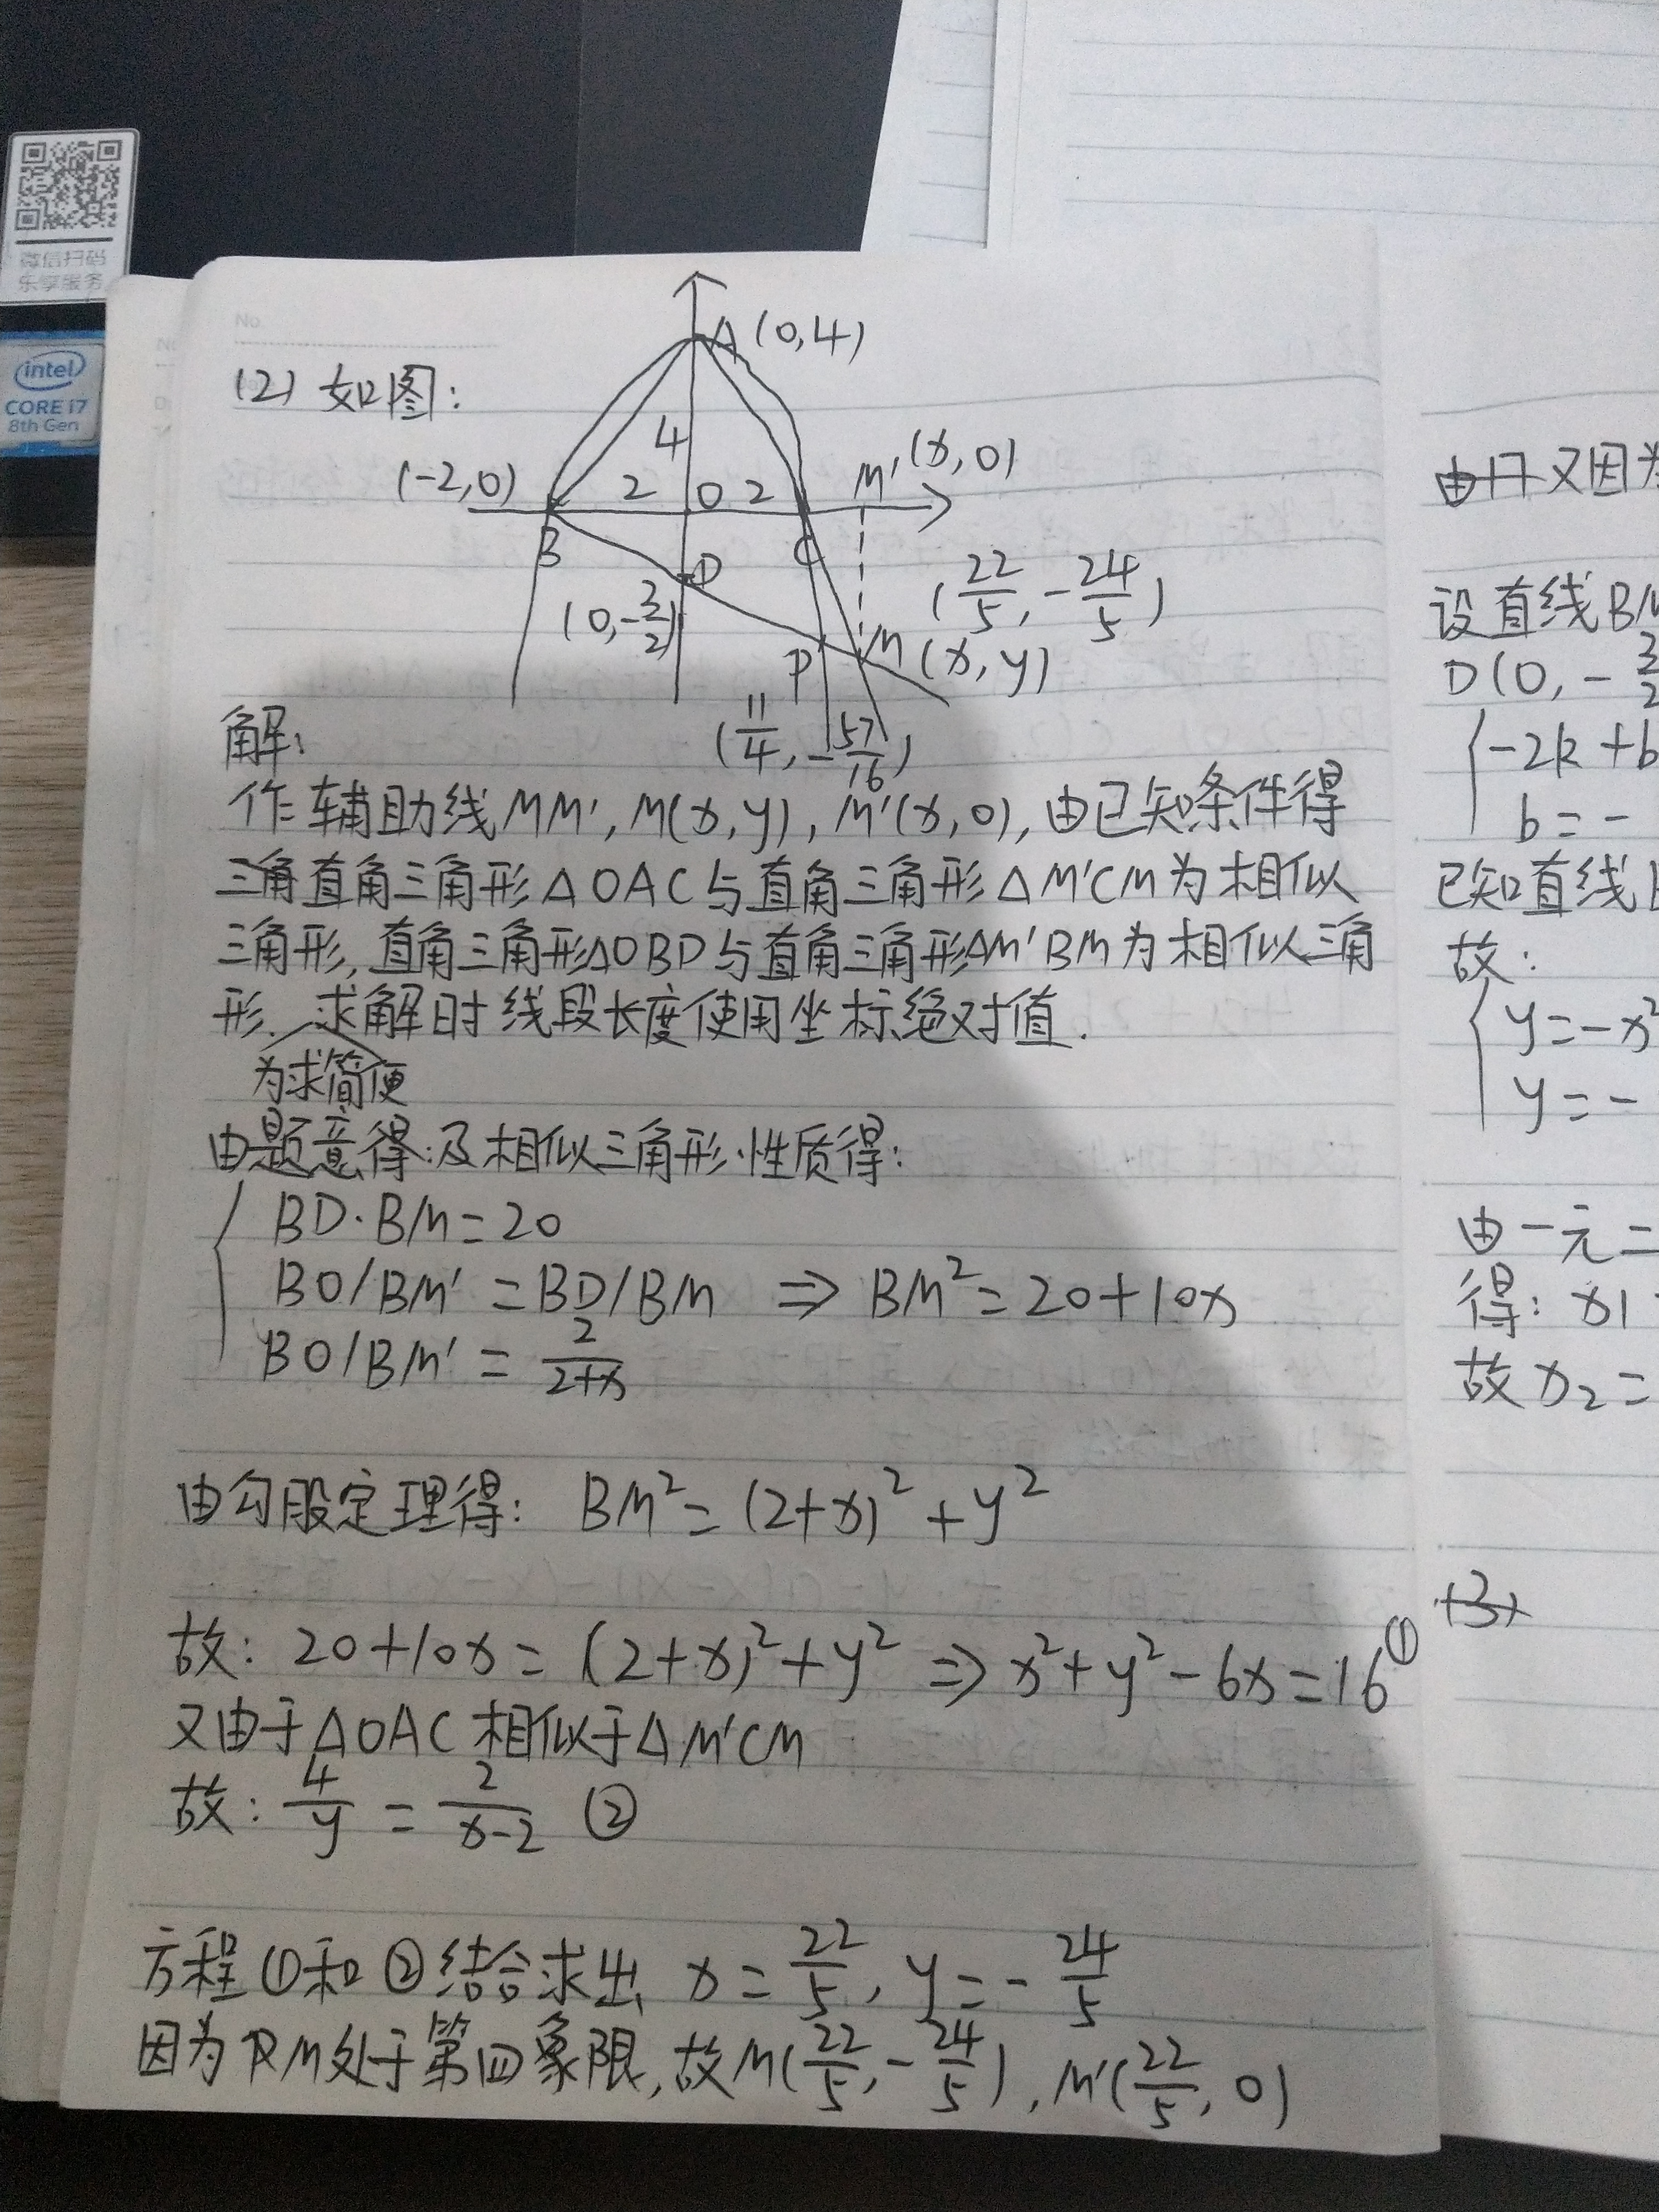 微信扫码
乐享服务
intel
CORE i7
8th Gen
No
(2) 如图:
A(0,4)
4
(-2,0)
2
O
2
M'(x,0)
B
C
D
(0,-3/2)
(22/5,-24/5)
P
M(x,y)
(11/4,-57/16)
解:
作辅助线MM',M(x,y),M'(x,0),由已知条件得
三角直角三角形△OAC与直角三角形△M'CM为相似
三角形,直角三角形△OBD与直角三角形△M'BM为相似三角
形.求解时线段长度使用坐标绝对值.
为求简便
由题意得:及相似三角形性质得:
BD·BM=20
BO/BM'=BD/BM ⇒ BM²=20+10x
BO/BM'=2/(2+x)
由勾股定理得: BM²=(2+x)²+y²
故: 20+10x=(2+x)²+y² ⇒ x²+y²-6x=16 ①
又由于△OAC相似于△M'CM
故: 4/y=2/(x-2) ②
方程①和②结合求出 x=22/5, y=-24/5
因为M处于第四象限,故M(22/5,-24/5),M'(22/5,0)
又因为
设直线BM
D(0,-3/2
-2k+b
b=-
已知直线
故:
y=-x²
y=-
由一元二
得: x1
故x2=
(3)